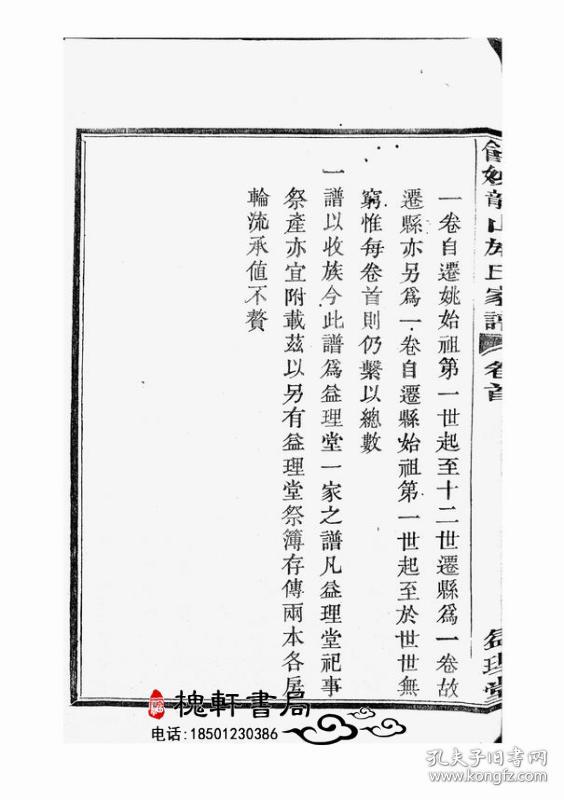 餘姚龍山施氏家譜 卷首 益理堂
一卷自遷姚始祖第一世起至十二世遷縣爲一卷故
遷縣亦另爲一卷自遷縣始祖第一世起至於世世無
窮惟每卷首則仍繫以總數
一譜以收族今此譜爲益理堂一家之譜凡益理堂祀事
祭產亦宜附載茲以另有益理堂祭簿存傳兩本各房
輪流承值不贅
槐軒書局
电话:18501230386
孔夫子旧书网
www.kongfz.com